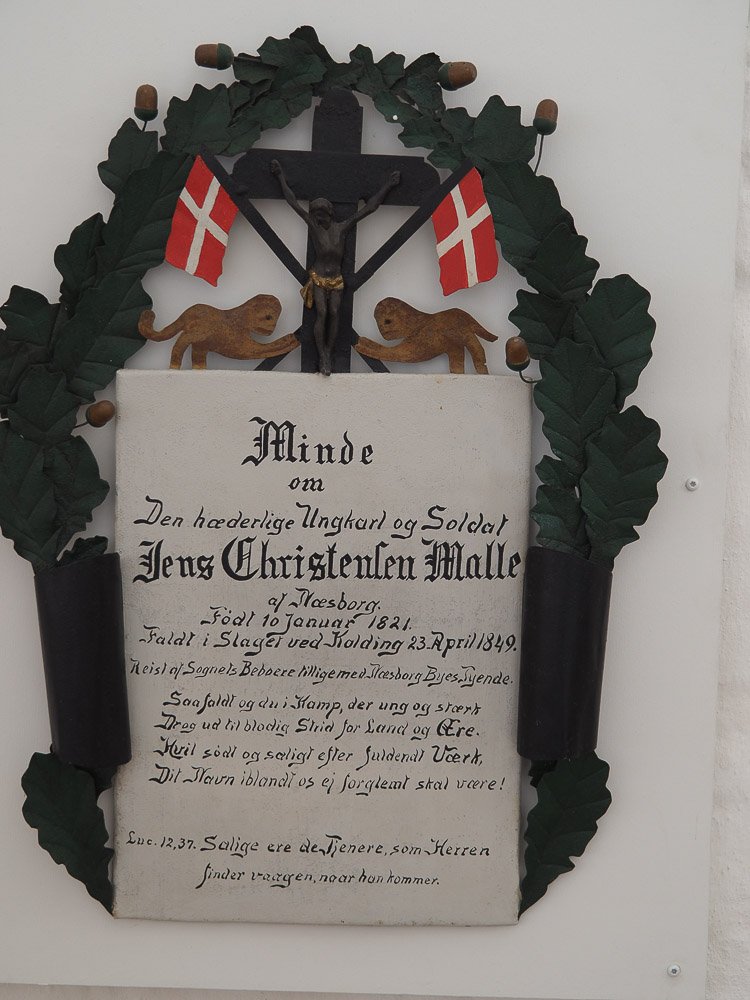 Minde
om
Den hæderlige Ungkarl og Soldat
Jens Christensen Malle
af Næsborg.
Födt 10 Januar 1821.
Faldt i Slaget ved Kolding 23. April 1849.
Reist af Sognets Beboere tilligemed Næsborg Byes Tyende.
Saa faldt og du i Kamp, der ung og stærk
Drog ud til blodig Strid for Land og Ære.
Hvil södt og saligt efter fuldendt Værk,
Dit Navn iblandt os ej forglemt skal være!
Luc. 12,37. Salige ere de Tjenere, som Herren
finder vaagen, naar han kommer.